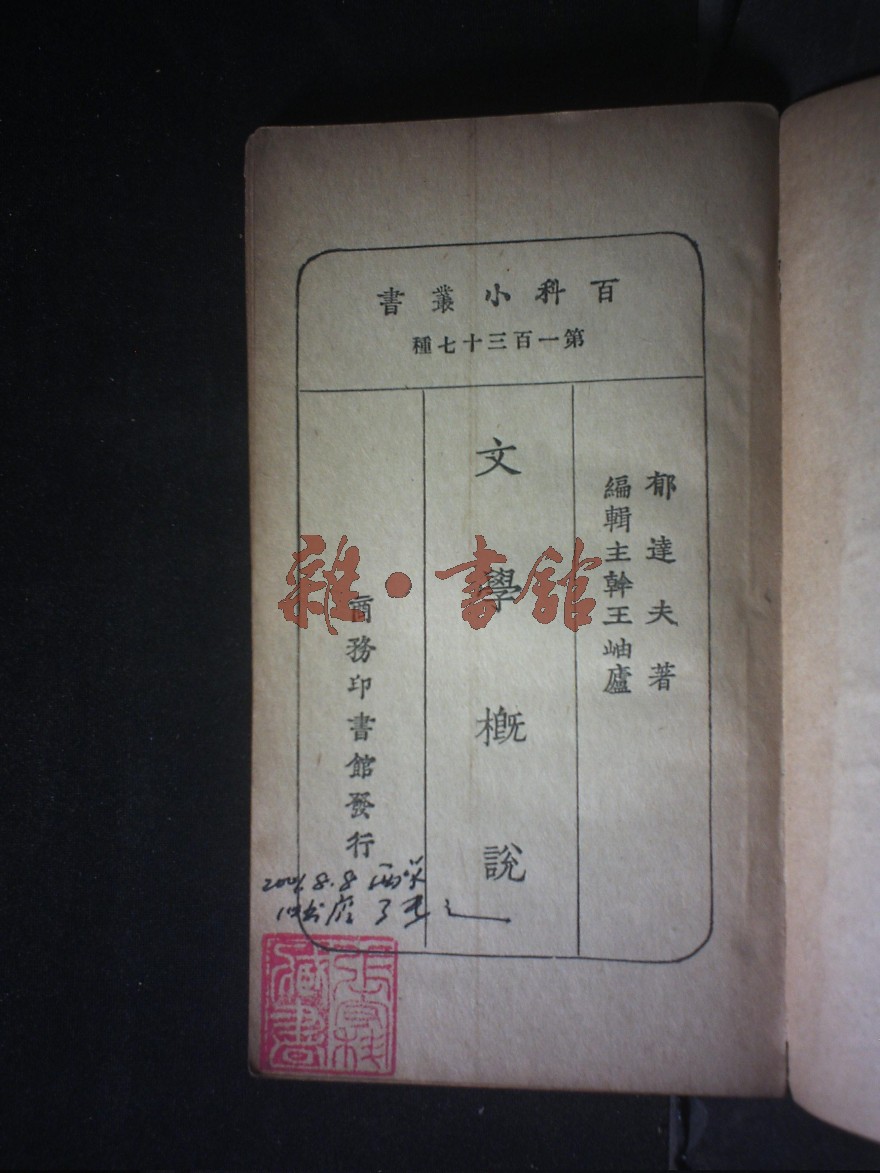 百科小叢書
第一百三十七種
郁達夫著
編輯主幹王岫廬
文學概說
商務印書館發行
雜·書館
2001.8.8
藏書